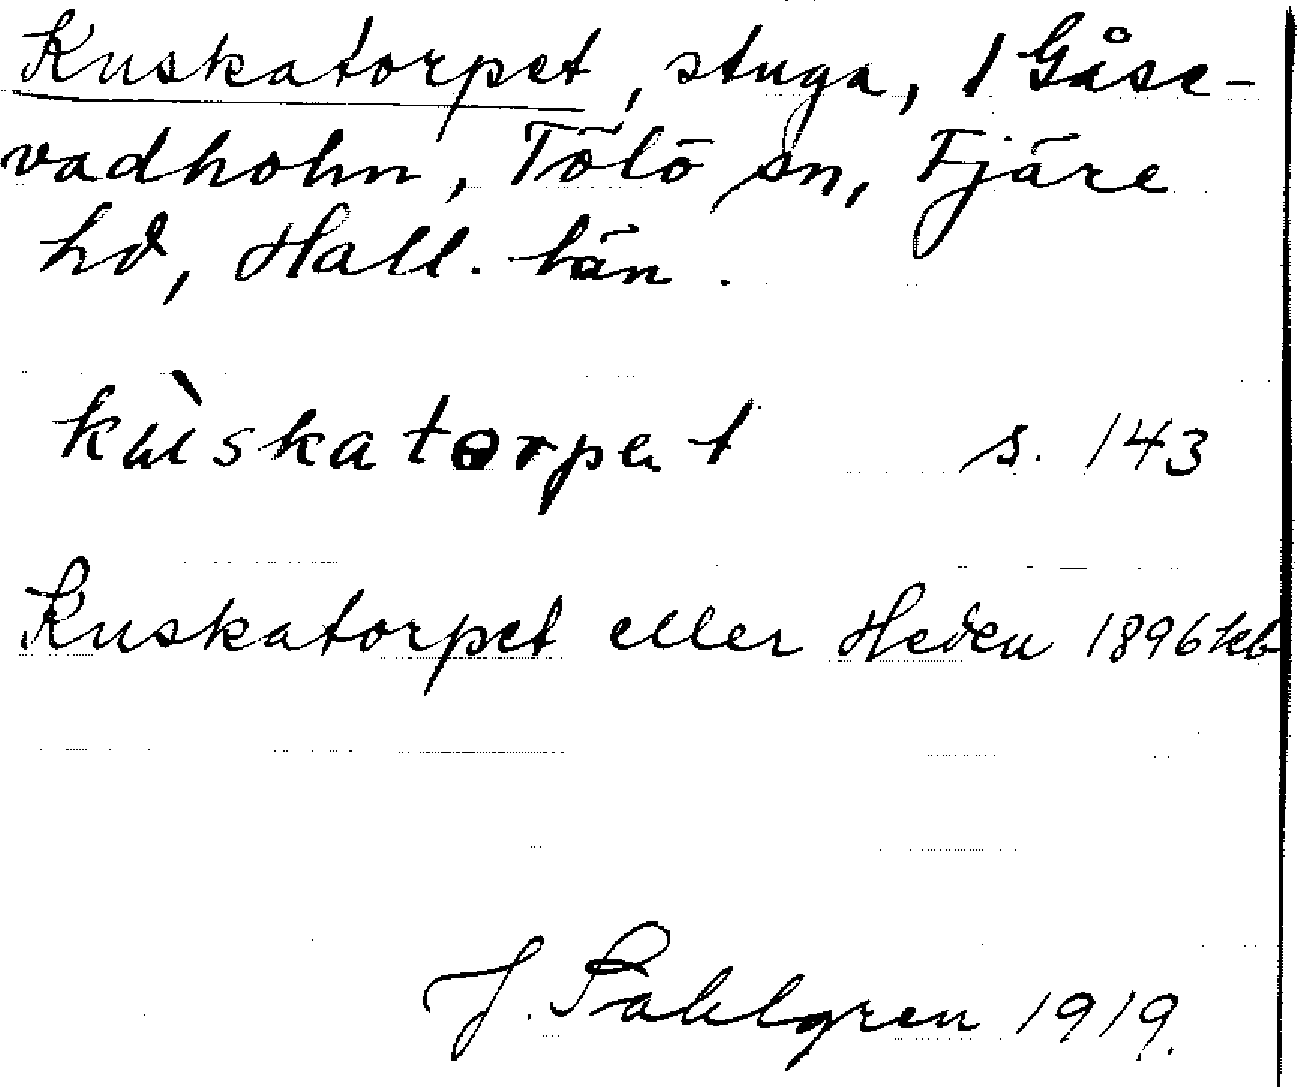 Kuskatorpet, stuga, 1 Gåse-
vadholm, Tölö sn, Fjäre
hd, Hall. län.
kùskatorpet s. 143
Kuskatorpet eller Heden 1896 kb
J. Sahlgren 1919.